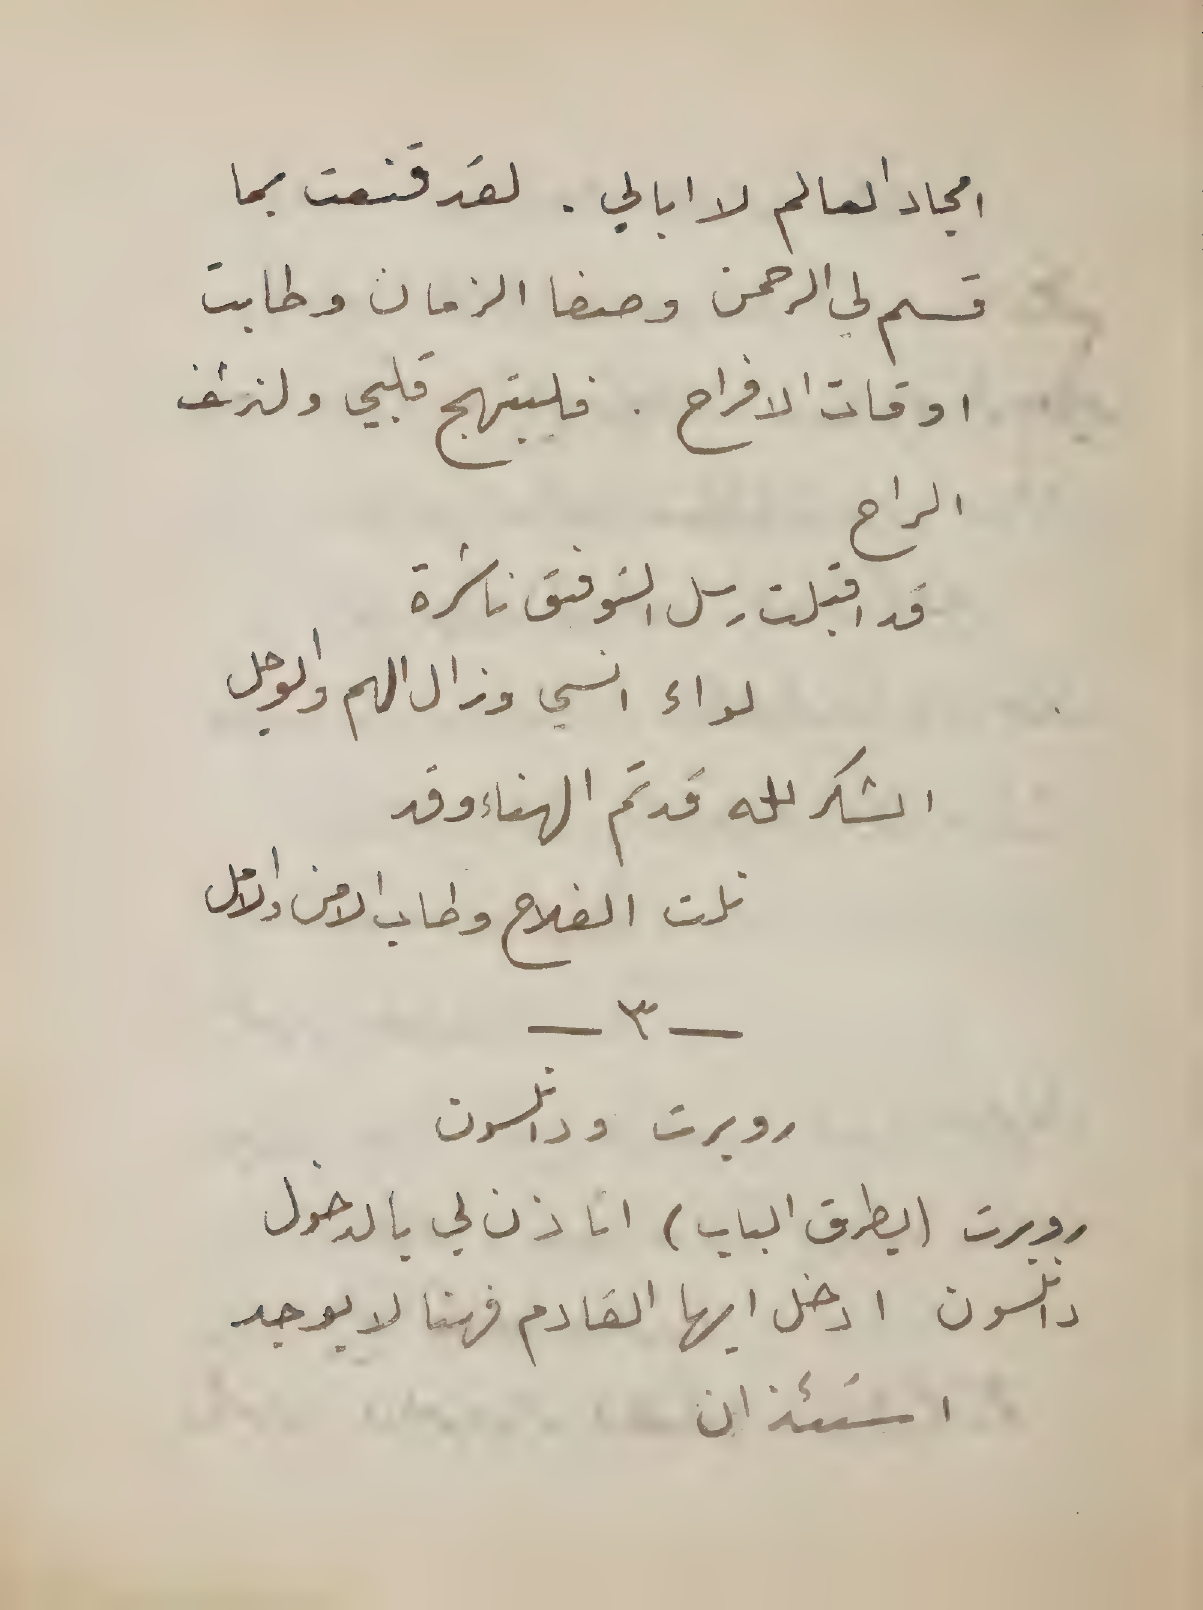 امجاد العالم لا ابالي . لقد قنعت بما
قسم لي الرحمن وصفا الزمان وطابت
اوقات الافراح . فليبتهج قلبي ولنرشف
الراح
قد اقبلت رسل التوفيق ناشرة
لواء انسي وزال الهم والوجل
الشكر لله قد تم الهناء وقد
نلت الفلاح وطاب الامن والامل
— ٣ —
روبرت ودانلسون
روبرت (يطرق الباب) اتاذن لي بالدخول
دانلسون ادخل ايها القادم فهنا لا يوجد
استئذان